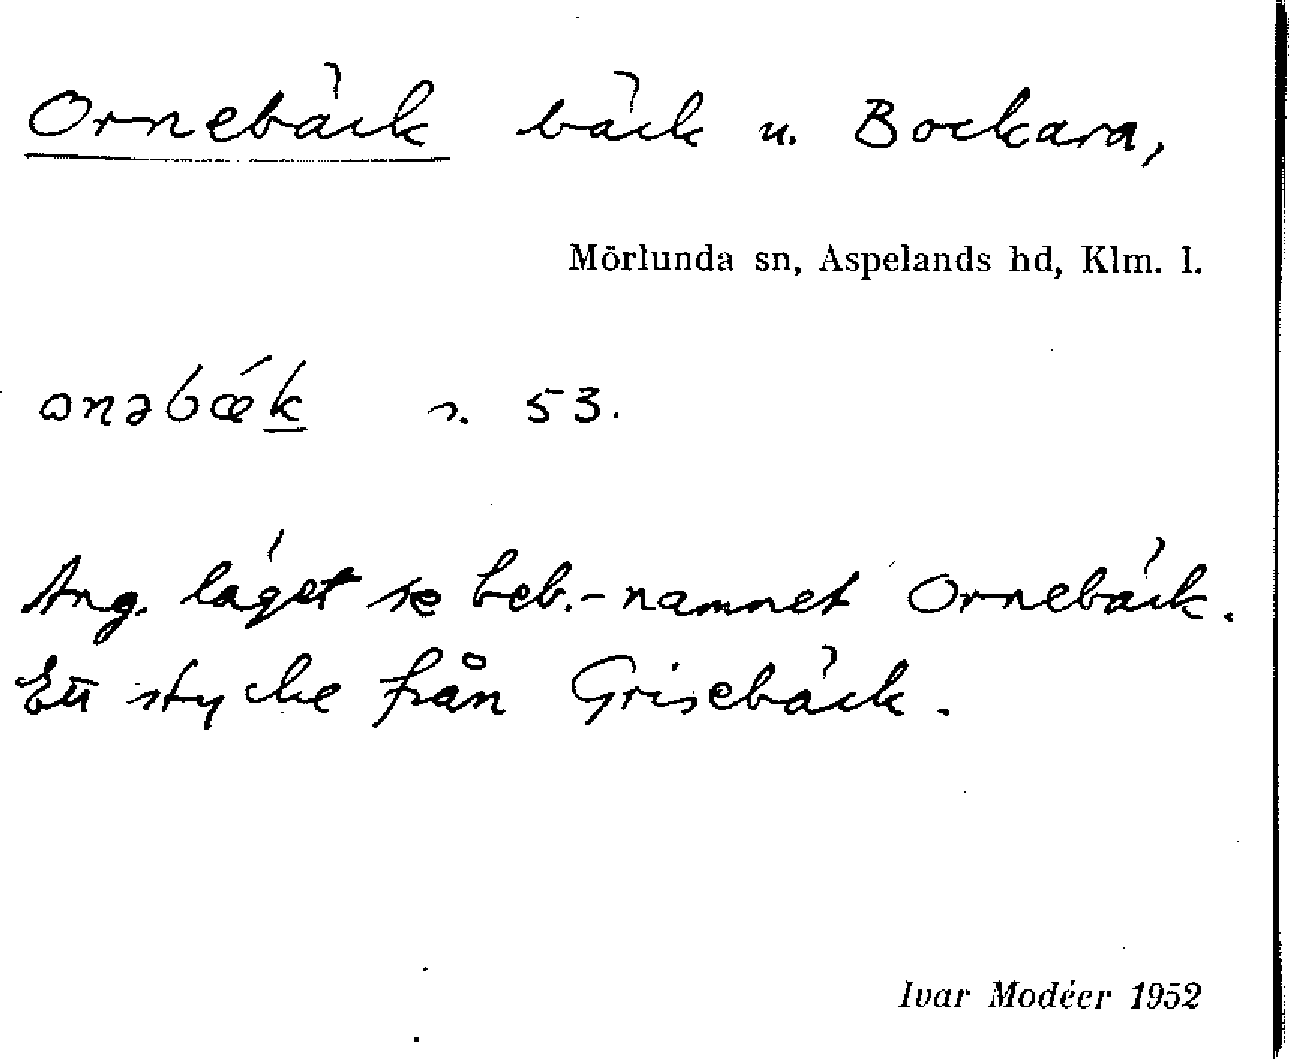 Ornebäck bäck u. Bockara,
Mörlunda sn, Aspelands hd, Klm. l.
ɷnəbǽk s. 53.
Ang. läget se beb.-namnet Ornebäck.
Ett stycke från Grisebäck.
Ivar Modéer 1952